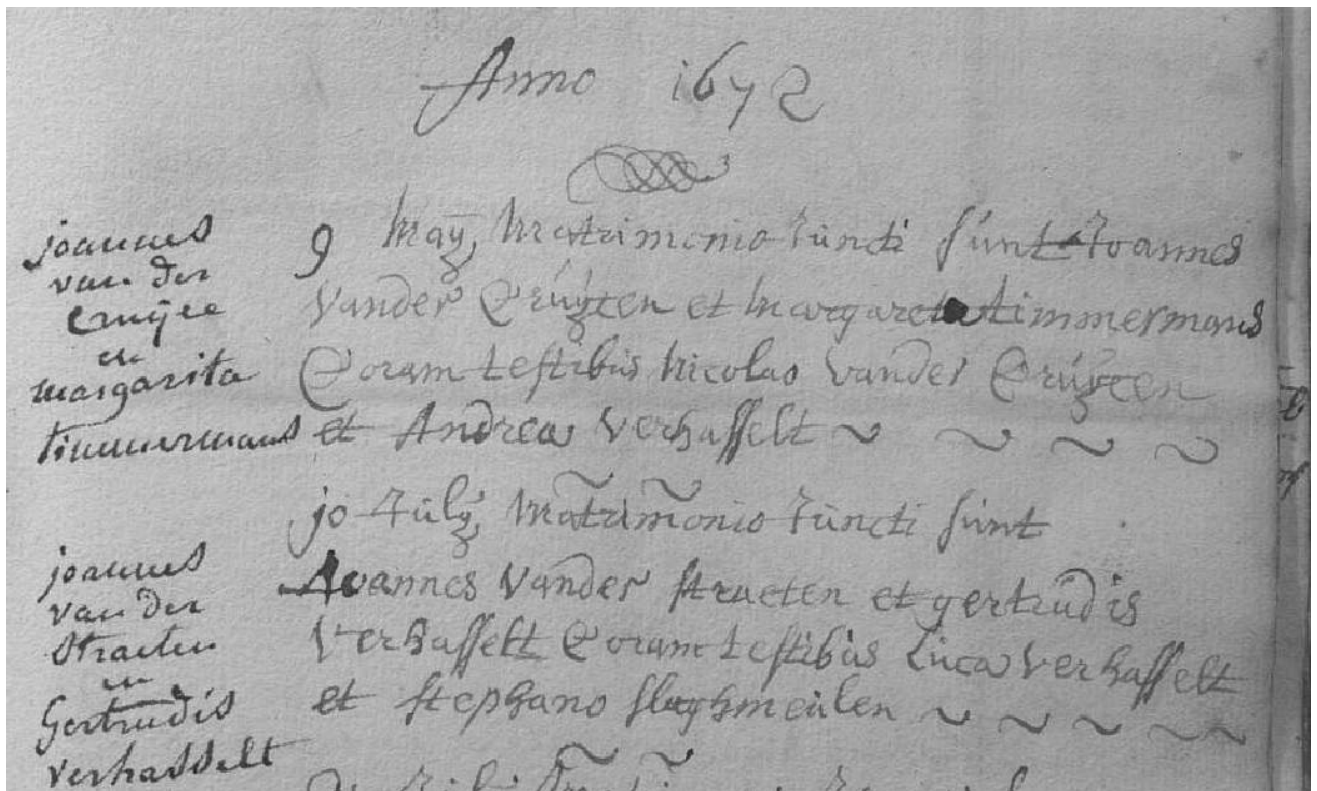 Anno 1672
joannes
van der
Cruijce
en
margarita
timmermans
9 Maÿ, Matrimonio Iuncti sunt Ioannes
Vander Cruÿcen et Margareta timmermans
Coram testibus Nicolao Vander Cruÿcen
et Andrea Verhasselt ~ ~ ~ ~
joannes
van der
Straeten
en
Gertrudis
verhasselt
jo Iulÿ, Matrimonio Iuncti sunt
Ioannes Vander straeten et gertrudis
Verhasselt Coram testibus Luca Verhasselt
et stephano slaghmeulen ~ ~ ~ ~ ~